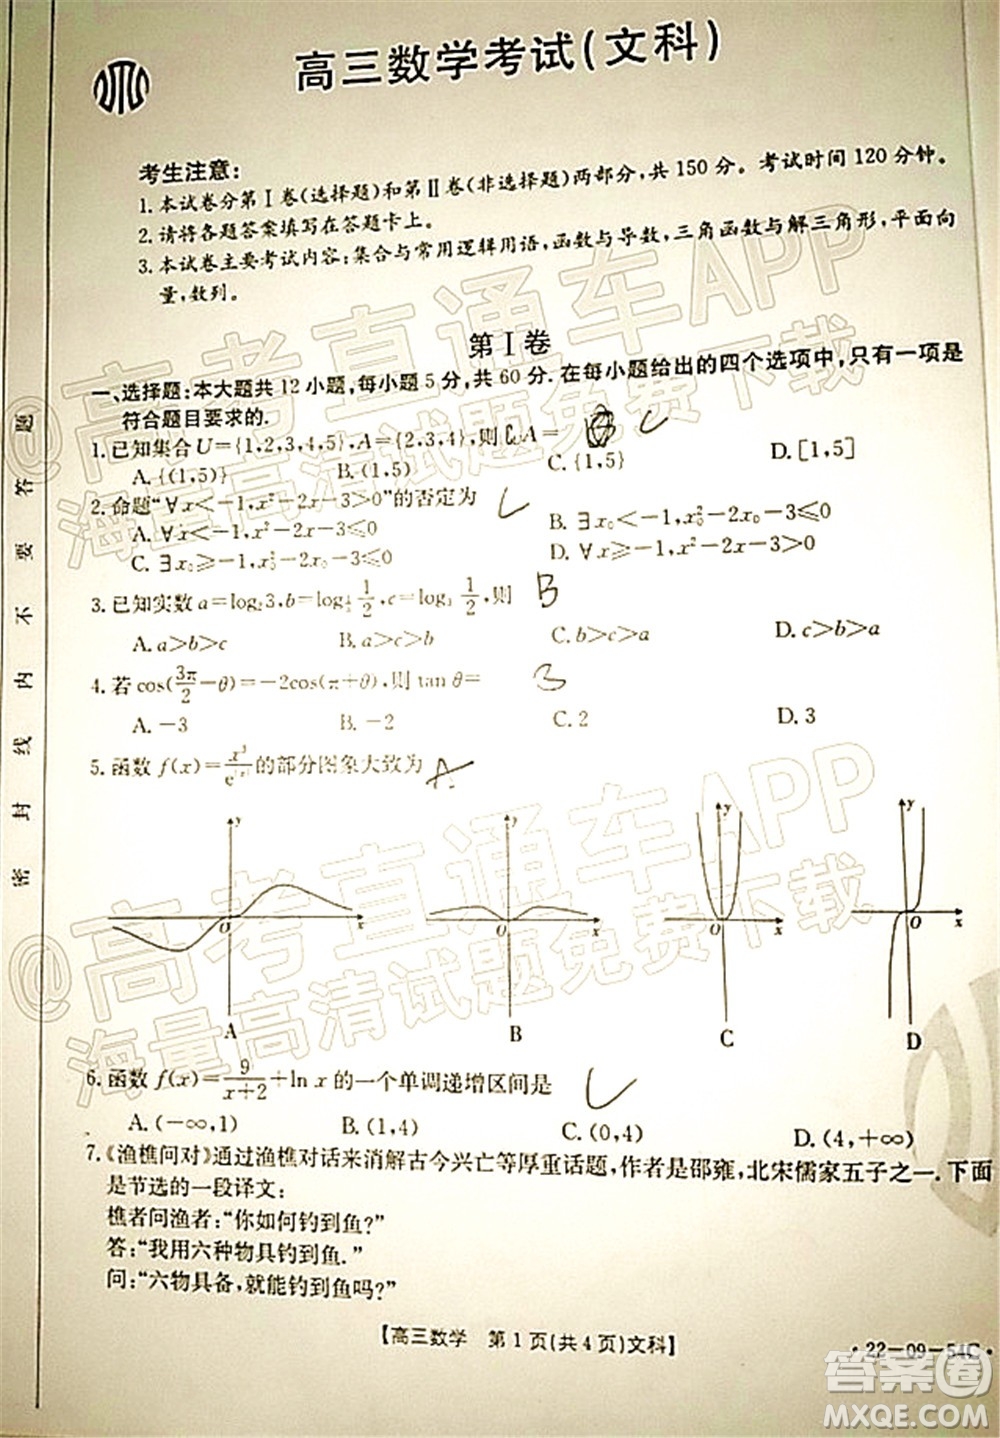 高三数学考试(文科)
考生注意:
1. 本试卷分第Ⅰ卷(选择题)和第Ⅱ卷(非选择题)两部分,共150分。考试时间120分钟。
2. 请将各题答案填写在答题卡上。
3. 本试卷主要考试内容:集合与常用逻辑用语,函数与导数,三角函数与解三角形,平面向
量,数列。
第Ⅰ卷
一、选择题:本大题共12小题,每小题5分,共60分.在每小题给出的四个选项中,只有一项是
符合题目要求的.
1. 已知集合U={1,2,3,4,5},A={2,3,4},则∁ᵤA= C
A. {(1,5)} B. (1,5) C. {1,5} D. [1,5]
2. 命题“∀x<-1,x²-2x-3>0”的否定为
A. ∀x<-1,x²-2x-3≤0 B. ∃x₀<-1,x₀²-2x₀-3≤0
C. ∃x₀≥-1,x₀²-2x₀-3≤0 D. ∀x≥-1,x²-2x-3>0
3. 已知实数a=log₂3,b=log 1/2,c=log₃ 1/2,则 B
A. a>b>c B. a>c>b C. b>c>a D. c>b>a
4. 若cos(3π/2-θ)=-2cos(π+θ),则tan θ= B
A. -3 B. -2 C. 2 D. 3
5. 函数f(x)=x³/e^|x|的部分图象大致为 A
y x O A
y x O B
y x O C
y x O D
6. 函数f(x)=9/(x+2)+ln x的一个单调递增区间是
A. (-∞,1) B. (1,4) C. (0,4) D. (4,+∞)
7. 《渔樵问对》通过渔樵对话来消解古今兴亡等厚重话题,作者是邵雍,北宋儒家五子之一.下面
是节选的一段译文:
樵者问渔者:“你如何钓到鱼?”
答:“我用六种物具钓到鱼.”
问:“六物具备,就能钓到鱼吗?”
【高三数学 第1页(共4页)文科】
·22-09-54C·
密封线内不要答题
@高考直通车APP
海量高清试题免费下载
@高考直通车APP
海量高清试题免费下载
答案圈
MXQE.COM